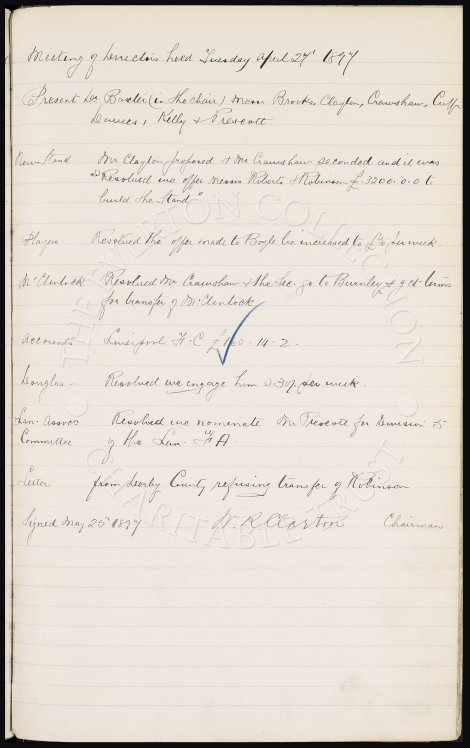 Meeting of Directors held Tuesday April 27th 1897
Present Dr Baxter (in the chair) Messrs Brooks, Clayton, Crawshaw, Cuff
Davies, Kelly & Prescott
New Stand Mr Clayton proposed & Mr Crawshaw seconded and it was
"Resolved we offer Messrs Roberts & Robinson £3200.0.0 to
build the Stand"
Players Resolved the offer made to Boyle be increased to £3 per week.
McClintock Resolved Mr Crawshaw & the Sec. go to Burnley & get terms
for transfer of McClintock
Accounts Liverpool F.C £160.14.2.
Douglas Resolved we engage him @ 30/- per week.
Lan. Assocn Resolved we nominate Mr Prescott for Division 5
Committee of the Lan. F A
Letter from Derby County refusing transfer of Robinson
Signed May 25 1897 W. R. Clayton Chairman
THE EVERTON COLLECTION
CHARITABLE TRUST